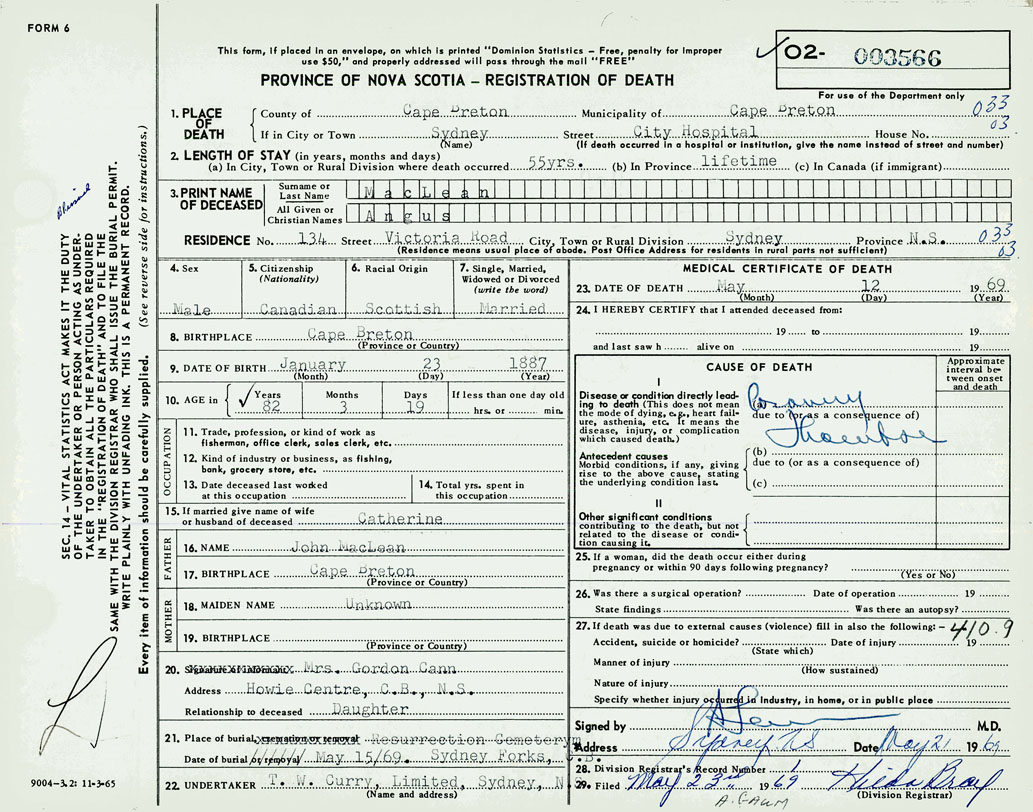 FORM 6
This form, if placed in an envelope, on which is printed "Dominion Statistics – Free, penalty for improper
use $50," and properly addressed will pass through the mail "FREE"
PROVINCE OF NOVA SCOTIA – REGISTRATION OF DEATH
02- 003566
For use of the Department only
1. PLACE OF DEATH
County of Cape Breton Municipality of Cape Breton 033
If in City or Town Sydney Street City Hospital House No. 03
(Name) (If death occurred in a hospital or institution, give the name instead of street and number)
2. LENGTH OF STAY (in years, months and days)
(a) In City, Town or Rural Division where death occurred 55yrs. (b) In Province lifetime (c) In Canada (if immigrant)
3. PRINT NAME OF DECEASED
Surname or Last Name MacLean
All Given or Christian Names Angus
RESIDENCE No. 134 Street Victoria Road City, Town or Rural Division Sydney Province N.S. 033
(Residence means usual place of abode. Post Office Address for residents in rural parts not sufficient) 03
4. Sex
Male
5. Citizenship
(Nationality)
Canadian
6. Racial Origin
Scottish
7. Single, Married,
Widowed or Divorced
(write the word)
Married
8. BIRTHPLACE Cape Breton
(Province or Country)
9. DATE OF BIRTH January 23 1887
(Month) (Day) (Year)
10. AGE in Years Months Days If less than one day old
82 3 19 hrs. or min.
OCCUPATION
11. Trade, profession, or kind of work as
fisherman, office clerk, sales clerk, etc.
12. Kind of industry or business, as fishing,
bank, grocery store, etc.
13. Date deceased last worked
at this occupation
14. Total yrs. spent in
this occupation
15. If married give name of wife
or husband of deceased Catherine
FATHER
16. NAME John MacLean
17. BIRTHPLACE Cape Breton
(Province or Country)
MOTHER
18. MAIDEN NAME Unknown
19. BIRTHPLACE
(Province or Country)
20. Signature of informant Mrs. Gordon Cann
Address Howie Centre, C.B., N.S.
Relationship to deceased Daughter
21. Place of burial, cremation or removal Resurrection Cemetery
Date of burial or removal May 15/69. Sydney Forks, C.B.
22. UNDERTAKER T. W. Curry, Limited, Sydney, N.S.
(Name and address)
MEDICAL CERTIFICATE OF DEATH
23. DATE OF DEATH May 12 1969
(Month) (Day) (Year)
24. I HEREBY CERTIFY that I attended deceased from:
19 to 19
and last saw h alive on 19
CAUSE OF DEATH
Approximate
interval be-
tween onset
and death
I
Disease or condition directly lead-
ing to death (This does not mean
the mode of dying, e.g., heart fail-
ure, asthenia, etc. It means the
disease, injury, or complication
which caused death.)
(a)
due to (or as a consequence of)
Antecedent causes
Morbid conditions, if any, giving
rise to the above cause, stating
the underlying condition last.
(b)
due to (or as a consequence of)
(c)
II
Other significant conditions
contributing to the death, but not
related to the disease or condi-
tion causing it.
25. If a woman, did the death occur either during
pregnancy or within 90 days following pregnancy?
(Yes or No)
26. Was there a surgical operation? Date of operation 19
State findings Was there an autopsy?
27. If death was due to external causes (violence) fill in also the following: – 410.9
Accident, suicide or homicide? Date of injury 19
(State which)
Manner of injury
(How sustained)
Nature of injury
Specify whether injury occurred in industry, in home, or in public place
Signed by M.D.
Address Sydney NS Date May 21 1969
28. Division Registrar's Record Number 1
29. Filed May 23rd 1969
(Division Registrar)
SEC. 14 – VITAL STATISTICS ACT MAKES IT THE DUTY
OF THE UNDERTAKER OR PERSON ACTING AS UNDER-
TAKER TO OBTAIN ALL THE PARTICULARS REQUIRED
IN THE "REGISTRATION OF DEATH" AND TO FILE THE
SAME WITH THE DIVISION REGISTRAR WHO SHALL ISSUE THE BURIAL PERMIT.
WRITE PLAINLY WITH UNFADING INK. THIS IS A PERMANENT RECORD.
Every item of information should be carefully supplied. (See reverse side for instructions.)
9004-3.2: 11-3-65